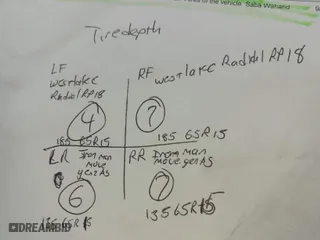 of the vehicle. Saba Wahand
Tiredepth
LF
westlake
Radial RP18
4
185 65R15
RF westlake Radial RP18
7
185 65R15
LR Iron man
move
gen AS
6
65R15
RR Iron man
move
gen AS
7
13565R15
DREAMBID